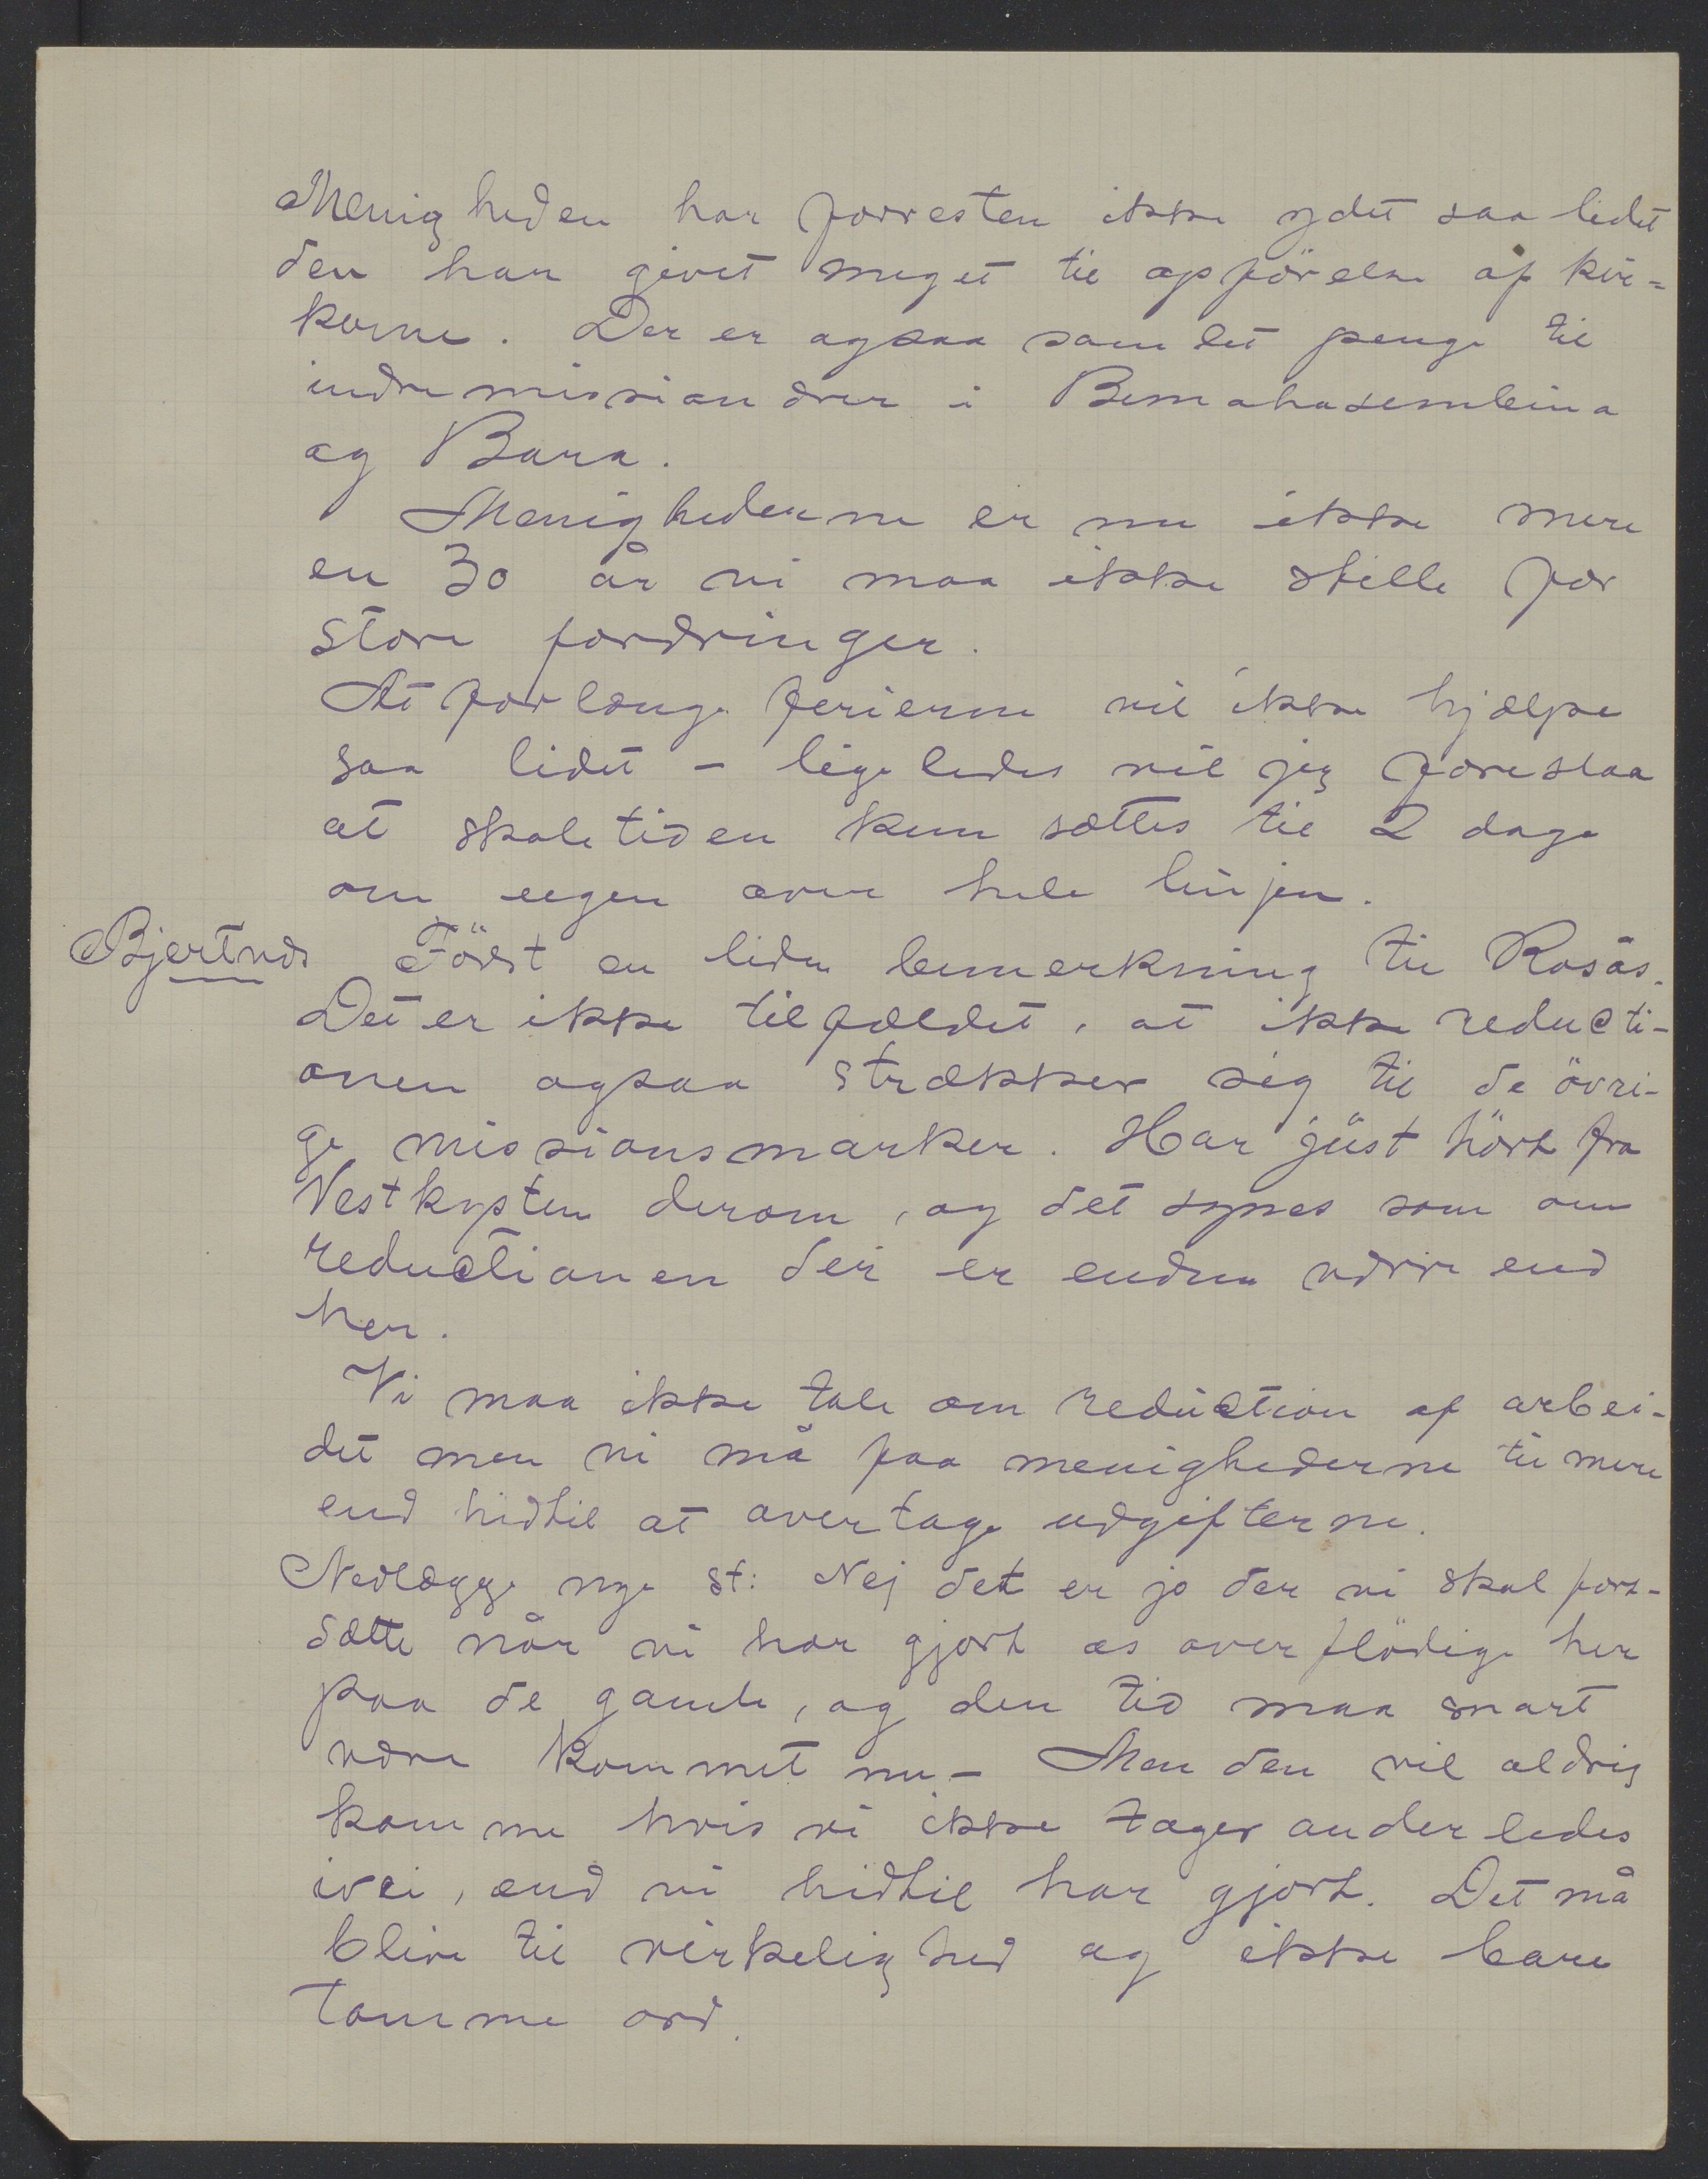 Menigheden har forresten ikke ydet saa lidet
den har givet meget til opförelse af kir-
kerne. Der er ogsaa samlet penge til
indremissionærer i Bemahasembina
og Bara.
Menighederne er nu ikke mere
en 30 år vi maa ikke stille for
store fordringer.
At forlænge ferierne vil ikke hjælpe
saa lidet - ligeledes vil jeg foreslaa
at skoletiden kun sættes til 2 dage
om uegen over hele linjen.
Bjertnæs Först en liden bemerkning til Rosås.
Det er ikke tilfældet, at ikke reducti-
onen ogsaa strækker sig til de övri-
ge missionsmarker. Har just hört fra
Vestkysten derom, og det synes som om
reductionen der er endnu värre end
her.
Vi maa ikke tale om reduction af arbei-
det men vi må faa menighederne til mere
end hidtil at overtage udgifterne.
Nedlægge nye st: Nej det er jo der vi skal fort-
sætte når vi har gjort os overflödige her
paa de gamle, og den tid maa snart
være kommet nu - Men den vil aldrig
komme hvis vi ikke tager anderledes
ivei, end vi hidtil har gjort. Det må
blive til virkelighed og ikke bare
tomme ord.